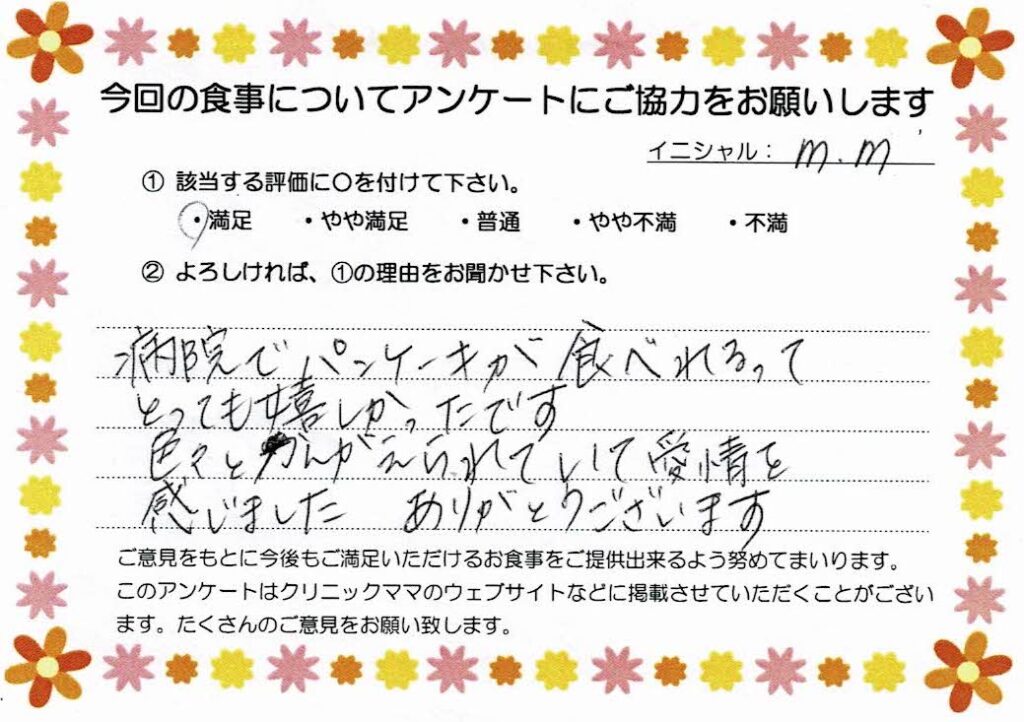 今回の食事についてアンケートにご協力をお願いします
イニシャル： m.m
① 該当する評価に〇を付けて下さい。
・満足 ・やや満足 ・普通 ・やや不満 ・不満
② よろしければ、①の理由をお聞かせ下さい。
病院でパンケーキが食べれるって
とっても嬉しかったです
色々とかんがえられていて愛情を
感じました ありがとうございます
ご意見をもとに今後もご満足いただけるお食事をご提供出来るよう努めてまいります。
このアンケートはクリニックママのウェブサイトなどに掲載させていただくことがござい
ます。たくさんのご意見をお願い致します。